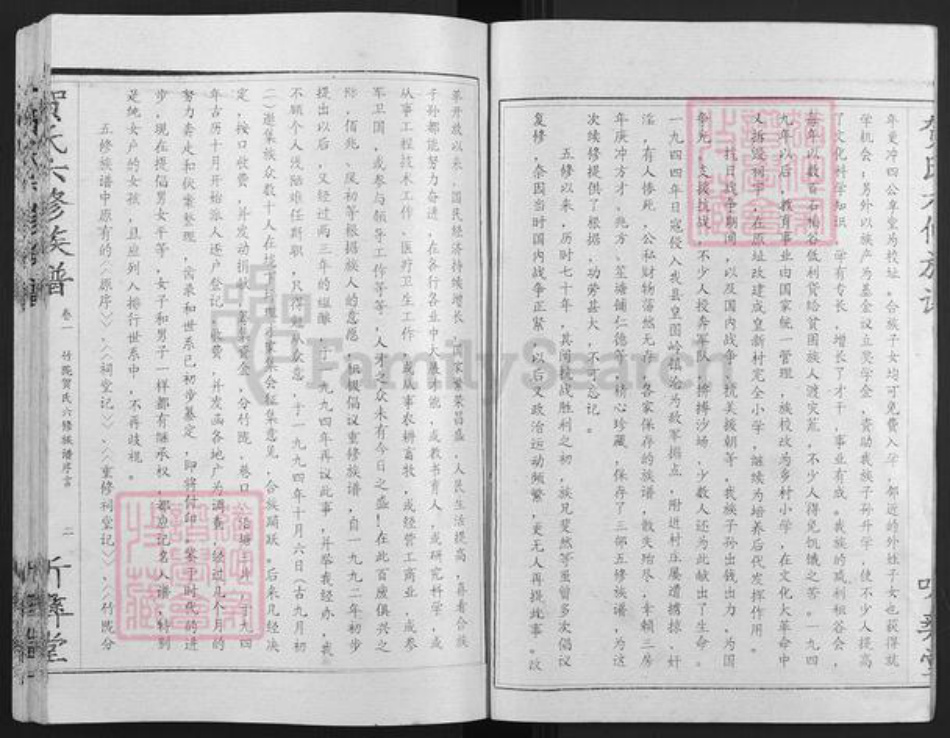 年更冲四公享堂为校址。合族子女均可免费入学，邻近的外姓子女也获得就
学机会；另外以族产为基金议立奖学金，资助我族子孙升学，使不少人提高
了文化科学知识，学有专长，增长了才干，事业有成。我族的咸利租谷会，
每年以数百石稻谷低利贷给贫困族人渡灾荒，不少人得免饥饿之苦。一九四
九年以后，教育事业由国家统一管理，族校改为乡村小学，在文化大革命中
又拆毁祠宇，在原址改建成皇新村完全小学，继续为培养后代发挥作用。
抗日战争期间，以及国内战争、抗美援朝等，我族子孙出钱出力，为国
争光，支援抗战，不少人投奔军队，拼搏沙场，少数人还为此献出了生命。
一九四四年日寇侵入我县皇图岭镇沦为敌军据点，附近村庄屡遭掳掠、奸
淫，有人惨死，公私财物荡然无存，各家保存的族谱，散失殆尽，幸赖三房
年庚冲方才、兆方、笙塘铺仁德等，精心珍藏，保存了三部五修族谱，为这
次续修提供了根据，功劳甚大，不可忘记。
五修以来，历时七十年，其间抗战胜利之初，族兄斐然等虽曾多次倡议
复修，奈因当时国内战争正紧，以后又政治运动频繁，更无人再提此事。改
革开放以来，国民经济持续增长，国家繁荣昌盛，人民生活提高，再看合族
子孙都能努力奋进，在各行各业中大展才能，或教书育人，或研究科学，或
从事工程技术工作、医疗卫生工作，或从事农耕畜牧，或经营工商业，或参
军卫国，或参与领导工作等等，人才之众未有今日之盛！在此百废俱兴之
际，佰兆、茂初等根据族人的意愿，积极倡议重修族谱，自一九九二年初步
提出以后，又经过两三年的酝酿，于一九九四年再议此事，并举我轻办，我
不顾个人浅陋难任斯职，只得赴从众意，于一九九四年十月六日（古九月初
二）邀集族众数十人在垅下打理小家集会征集意见，合族踊跃。后来几经决
定，按口收费，并发动捐献，筹集资金，分竹陇、巷口、沿塘三片，于九四
年古历十月开始派人逐户登记，收费，并发函各地广为调查，经过几个月的
努力奔走和伏案整理，齿录和世系已初步纂定，即将付印。鉴于时代的进
步，现在提倡男女平等，女子和男子一样都有继承权，都应记名入谱，特别
是纯女户的女孩，且应列入排行世系中，不再歧视。
五修族谱中原有的《原序》、《祠堂记》、《重修祠堂记》、《竹陇分
贺氏六修族谱
卷一
竹陇贺氏六修族谱序言
二